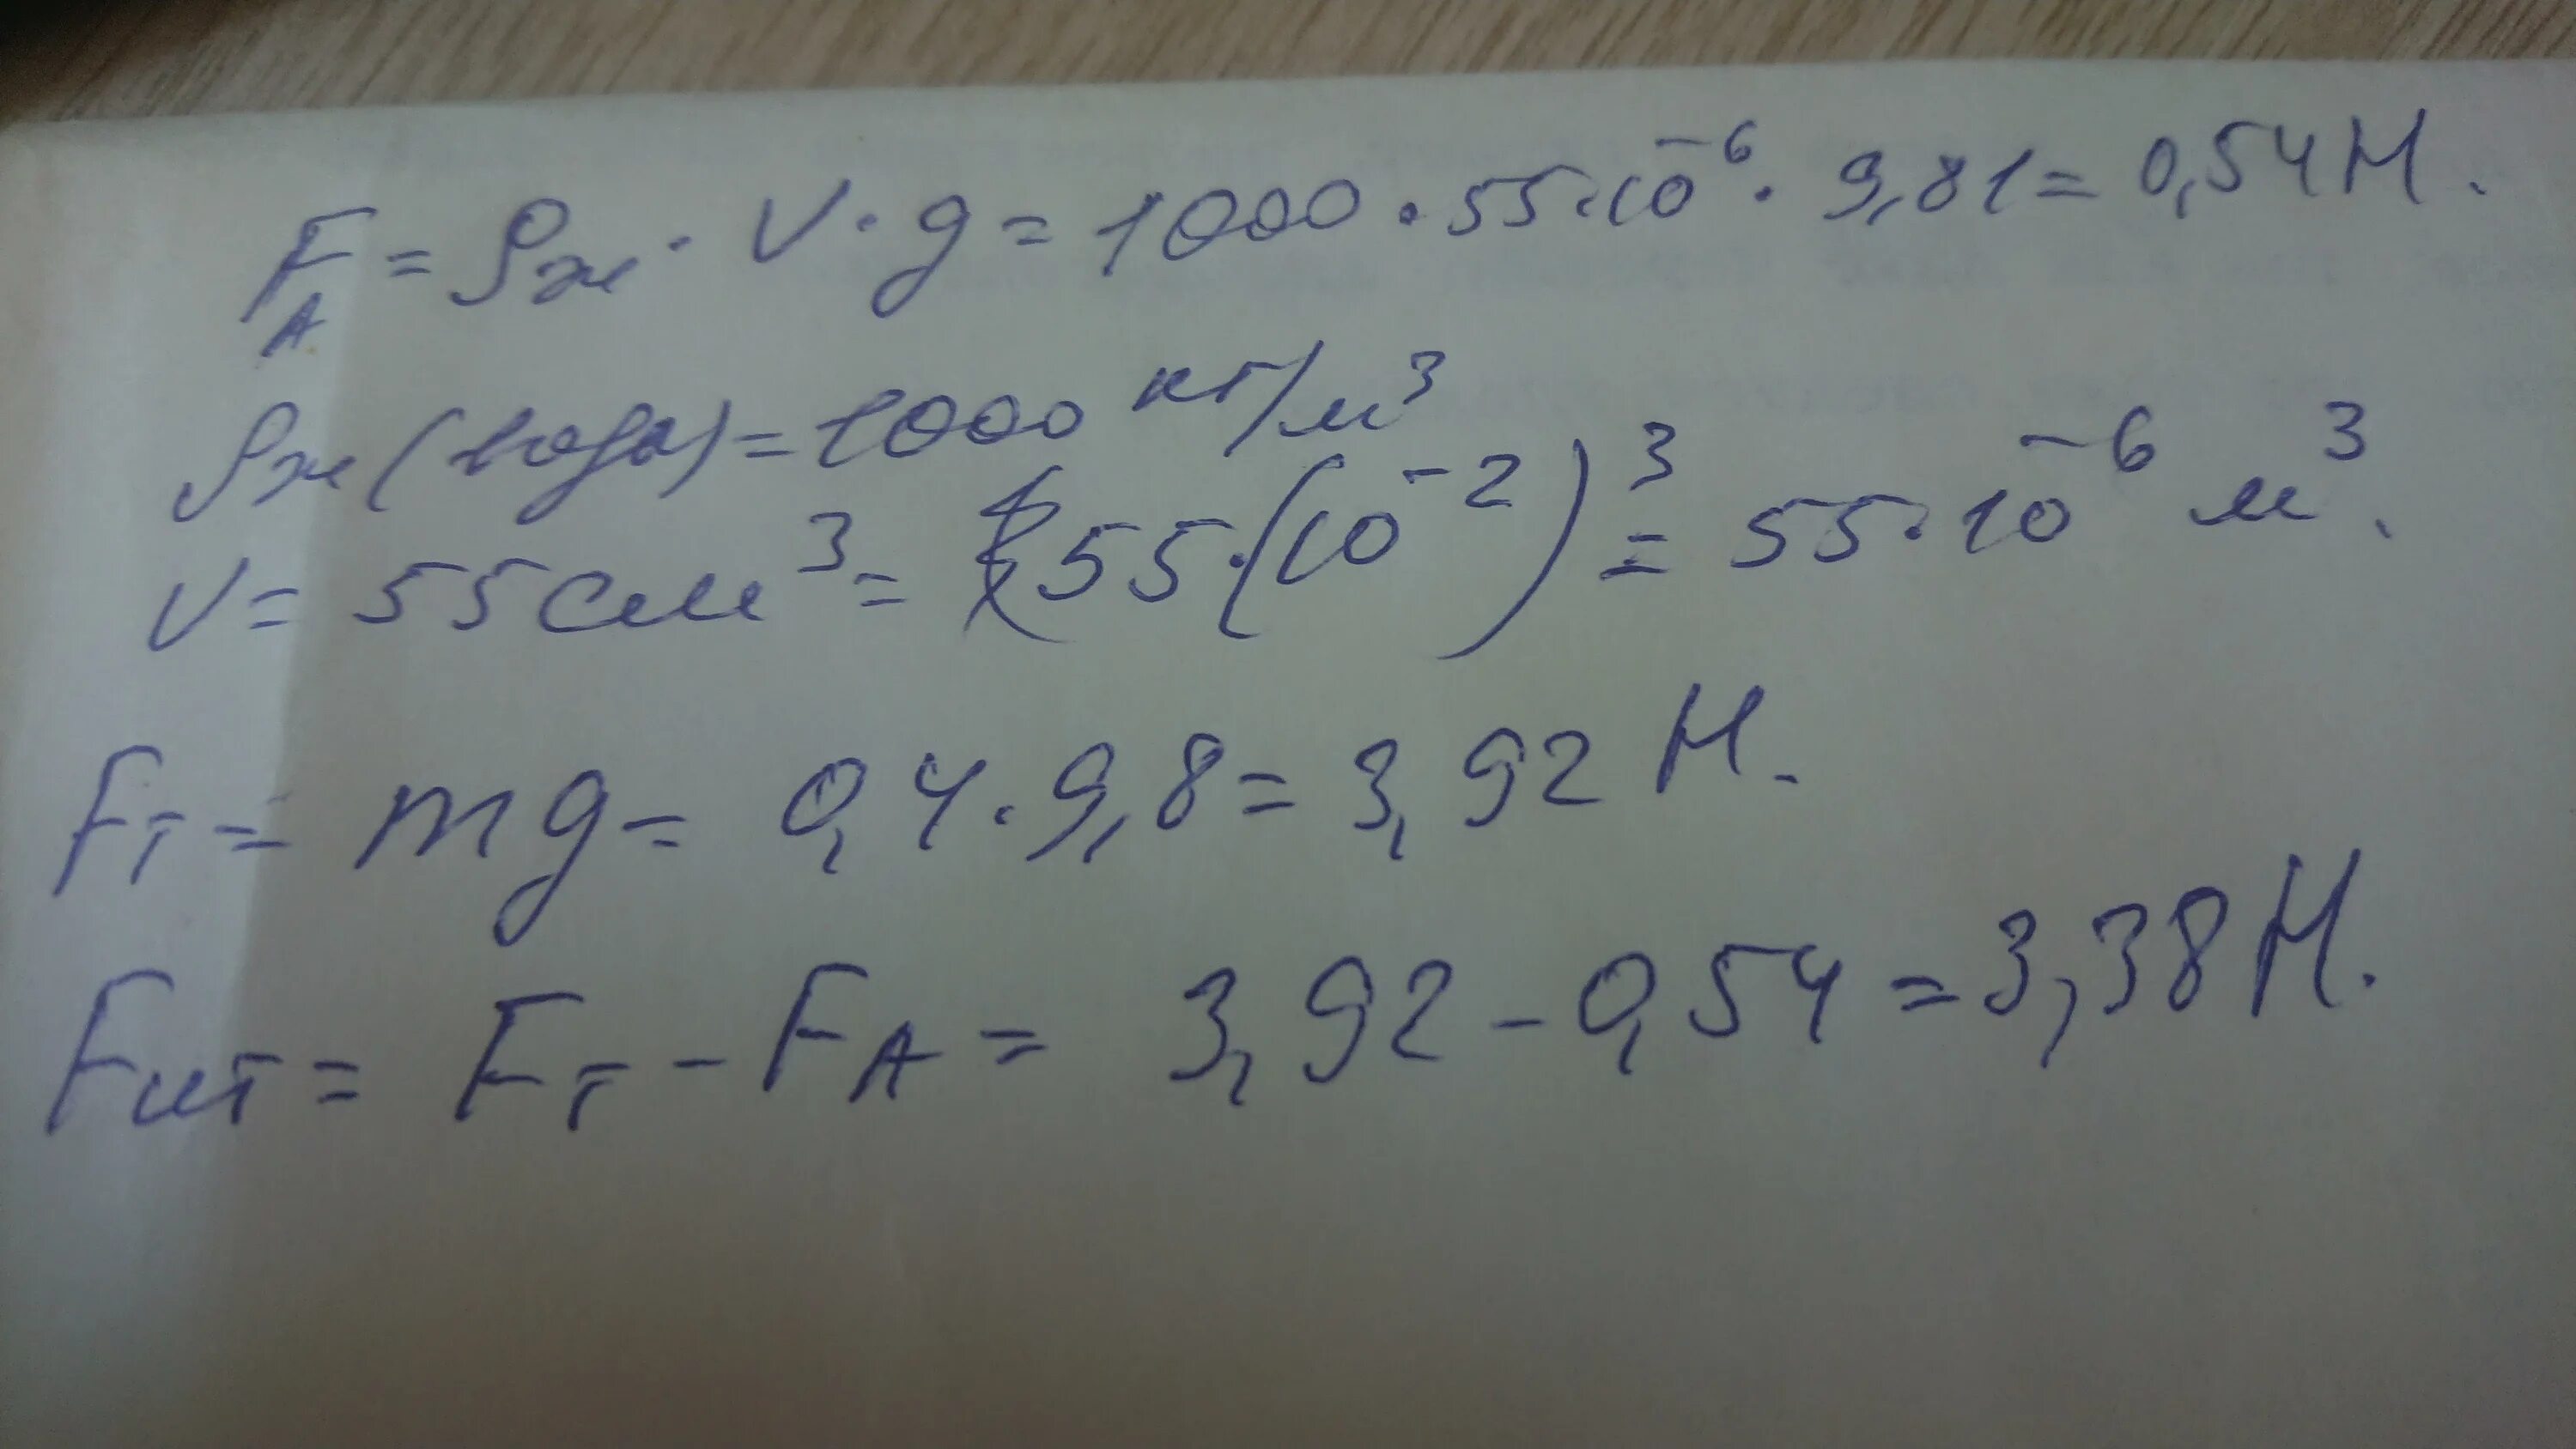 F_A = ρж · V · g = 1000 · 55 · 10⁻⁶ · 9,81 = 0,54 Н.
ρж (вода) = 1000 кг/м³
V = 55 см³ = 55 · (10⁻²)³ = 55 · 10⁻⁶ м³.
Fт = mg = 0,4 · 9,8 = 3,92 Н.
Fит = Fт - F_A = 3,92 - 0,54 = 3,38 Н.